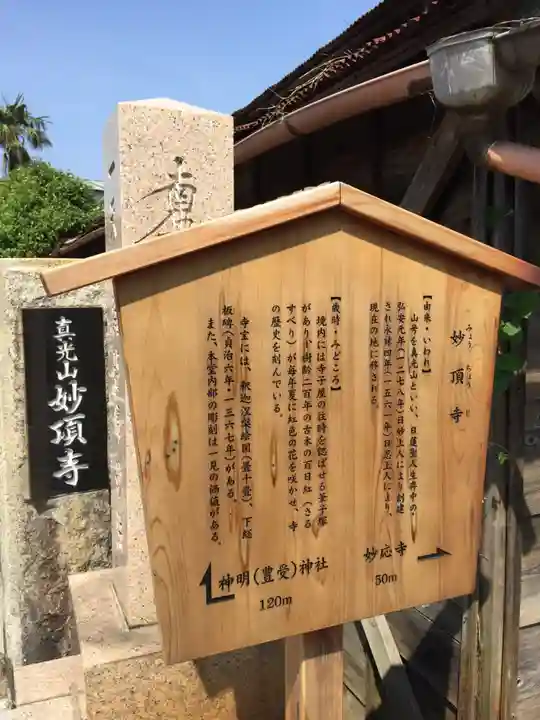 妙頂寺
みょう ちょう じ
【由来・いわれ】
山号を真光山といい、日蓮聖人生存中の、
弘安元年(一二七八年)日妙上人により創建
され永禄四年(一五六一年)日忍上人により、
現在の地に移される。
【歳時・みどころ】
境内には寺子屋の往時を認ばせる筆子塚
があり、樹齢二百年の古木の百日紅(さる
すべり)が毎年夏に紅色の花を咲かせ、寺
の歴史を刻んでいる。
寺宝には、釈迦涅槃絵図(畳十畳)、下総
板碑(貞治六年・一三六七年)がある。
また、本堂内部の彫刻は一見の価値がある。
妙応寺
50m
神明(豊受)神社
120m
真光山妙頂寺
南